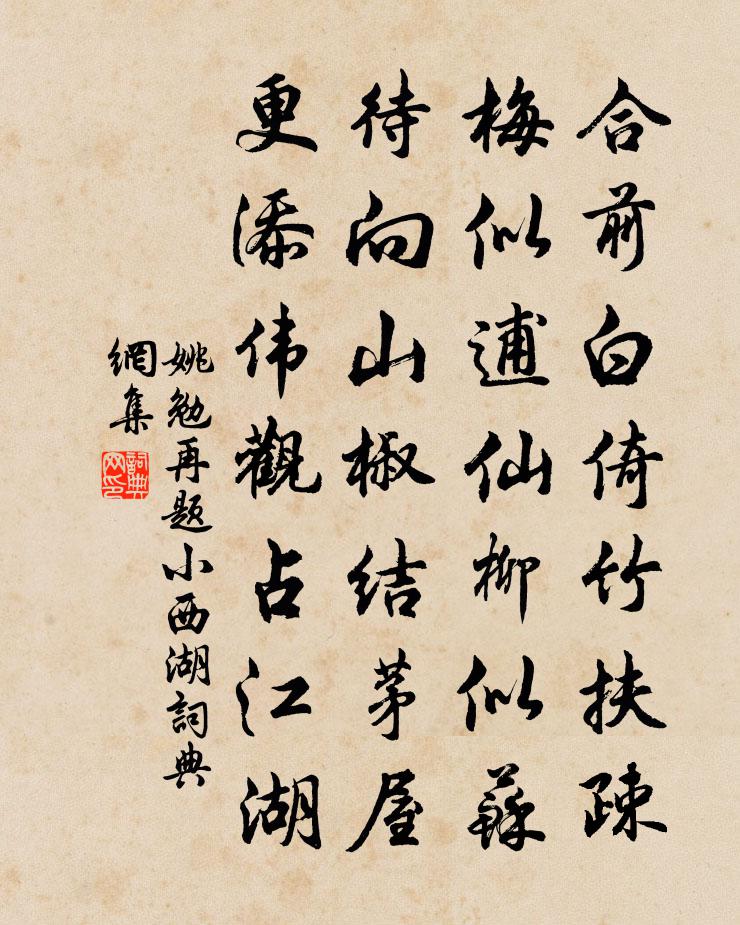 合前白倚竹扶疎
梅似逋仙柳似蘇
待向山椒結茅屋
更添伟觀占江湖
姚勉再题小西湖詞典
網集
詞典
网印